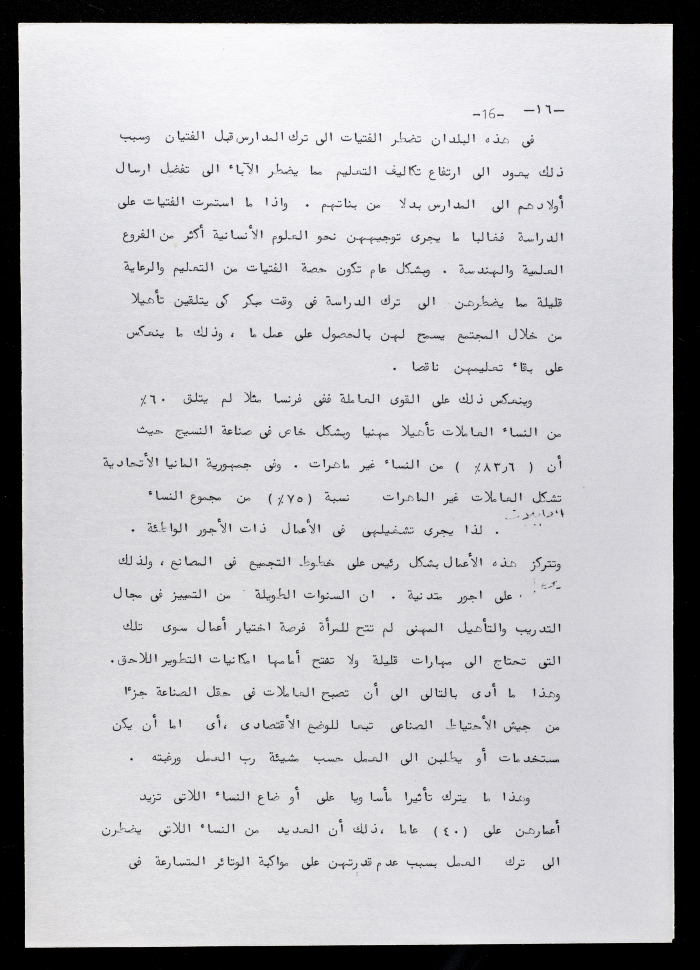 -١٦-
-16-
فى هذه البلدان تضطر الفتيات الى ترك المدارس قبل الفتيان وسبب
ذلك يعود الى ارتفاع تكاليف التعليم مما يضطر الآباء الى تفضل ارسال
أولادهم الى المدارس بدلا من بناتهم . واذا ما استمرت الفتيات على
الدراسة فغالبا ما يجرى توجيههن نحو العلوم الأنسانية أكثر من الفروع
العلمية والهندسة . وبشكل عام تكون حصة الفتيات من التعليم والرعاية
قليلة مما يضطرهن الى ترك الدراسة فى وقت مبكر كى يتلقين تأهيلا
من خلال المجتمع يسمح لهن بالحصول على عمل ما ، وذلك ما ينعكس
على بقاء تعليمهن ناقصا .
وينعكس ذلك على القوى العاملة ففى فرنسا مثلا لم يتلق ٦٠٪
من النساء العاملات تأهيلا مهنيا وبشكل خاص فى صناعة النسيج حيث
أن ( ٨٣٫٦٪ ) من النساء غير ماهرات . وفى جمهورية المانيا الأتحادية
تشكل العاملات غير الماهرات نسبة (٧٥٪) من مجموع النساء
العاملات . لذا يجرى تشغيلهن فى الأعمال ذات الأجور الواطئة .
وتتركز هذه الأعمال بشكل رئيس على خطوط التجميع فى المصانع ، ولذلك
على اجور متدنية . ان السنوات الطويلة من التمييز فى مجال
التدريب والتأهيل المهنى لم تتح للمرأة فرصة اختيار أعمال سوى تلك
التى تحتاج الى مهارات قليلة ولا تفتح أمامها امكانيات التطوير اللاحق.
وهذا ما أدى بالتالى الى أن تصبح العاملات فى حقل الصناعة جزءا
من جيش الأحتياط الصناعى تبعا للوضع الأقتصادى ،أى اما أن يكن
مستخدمات أو يطلبن الى العمل حسب مشيئة رب العمل ورغبته .
وهذا ما يترك تأثيرا مأسا ويا على أو ضاع النساء اللاتى تزيد
أعمارهن على (٤٠) عاما ،ذلك أن العديد من النساء اللاتى يضطرن
الى ترك العمل بسبب عدم قدرتهن على مواكبة الوتائر المتسارعة فى